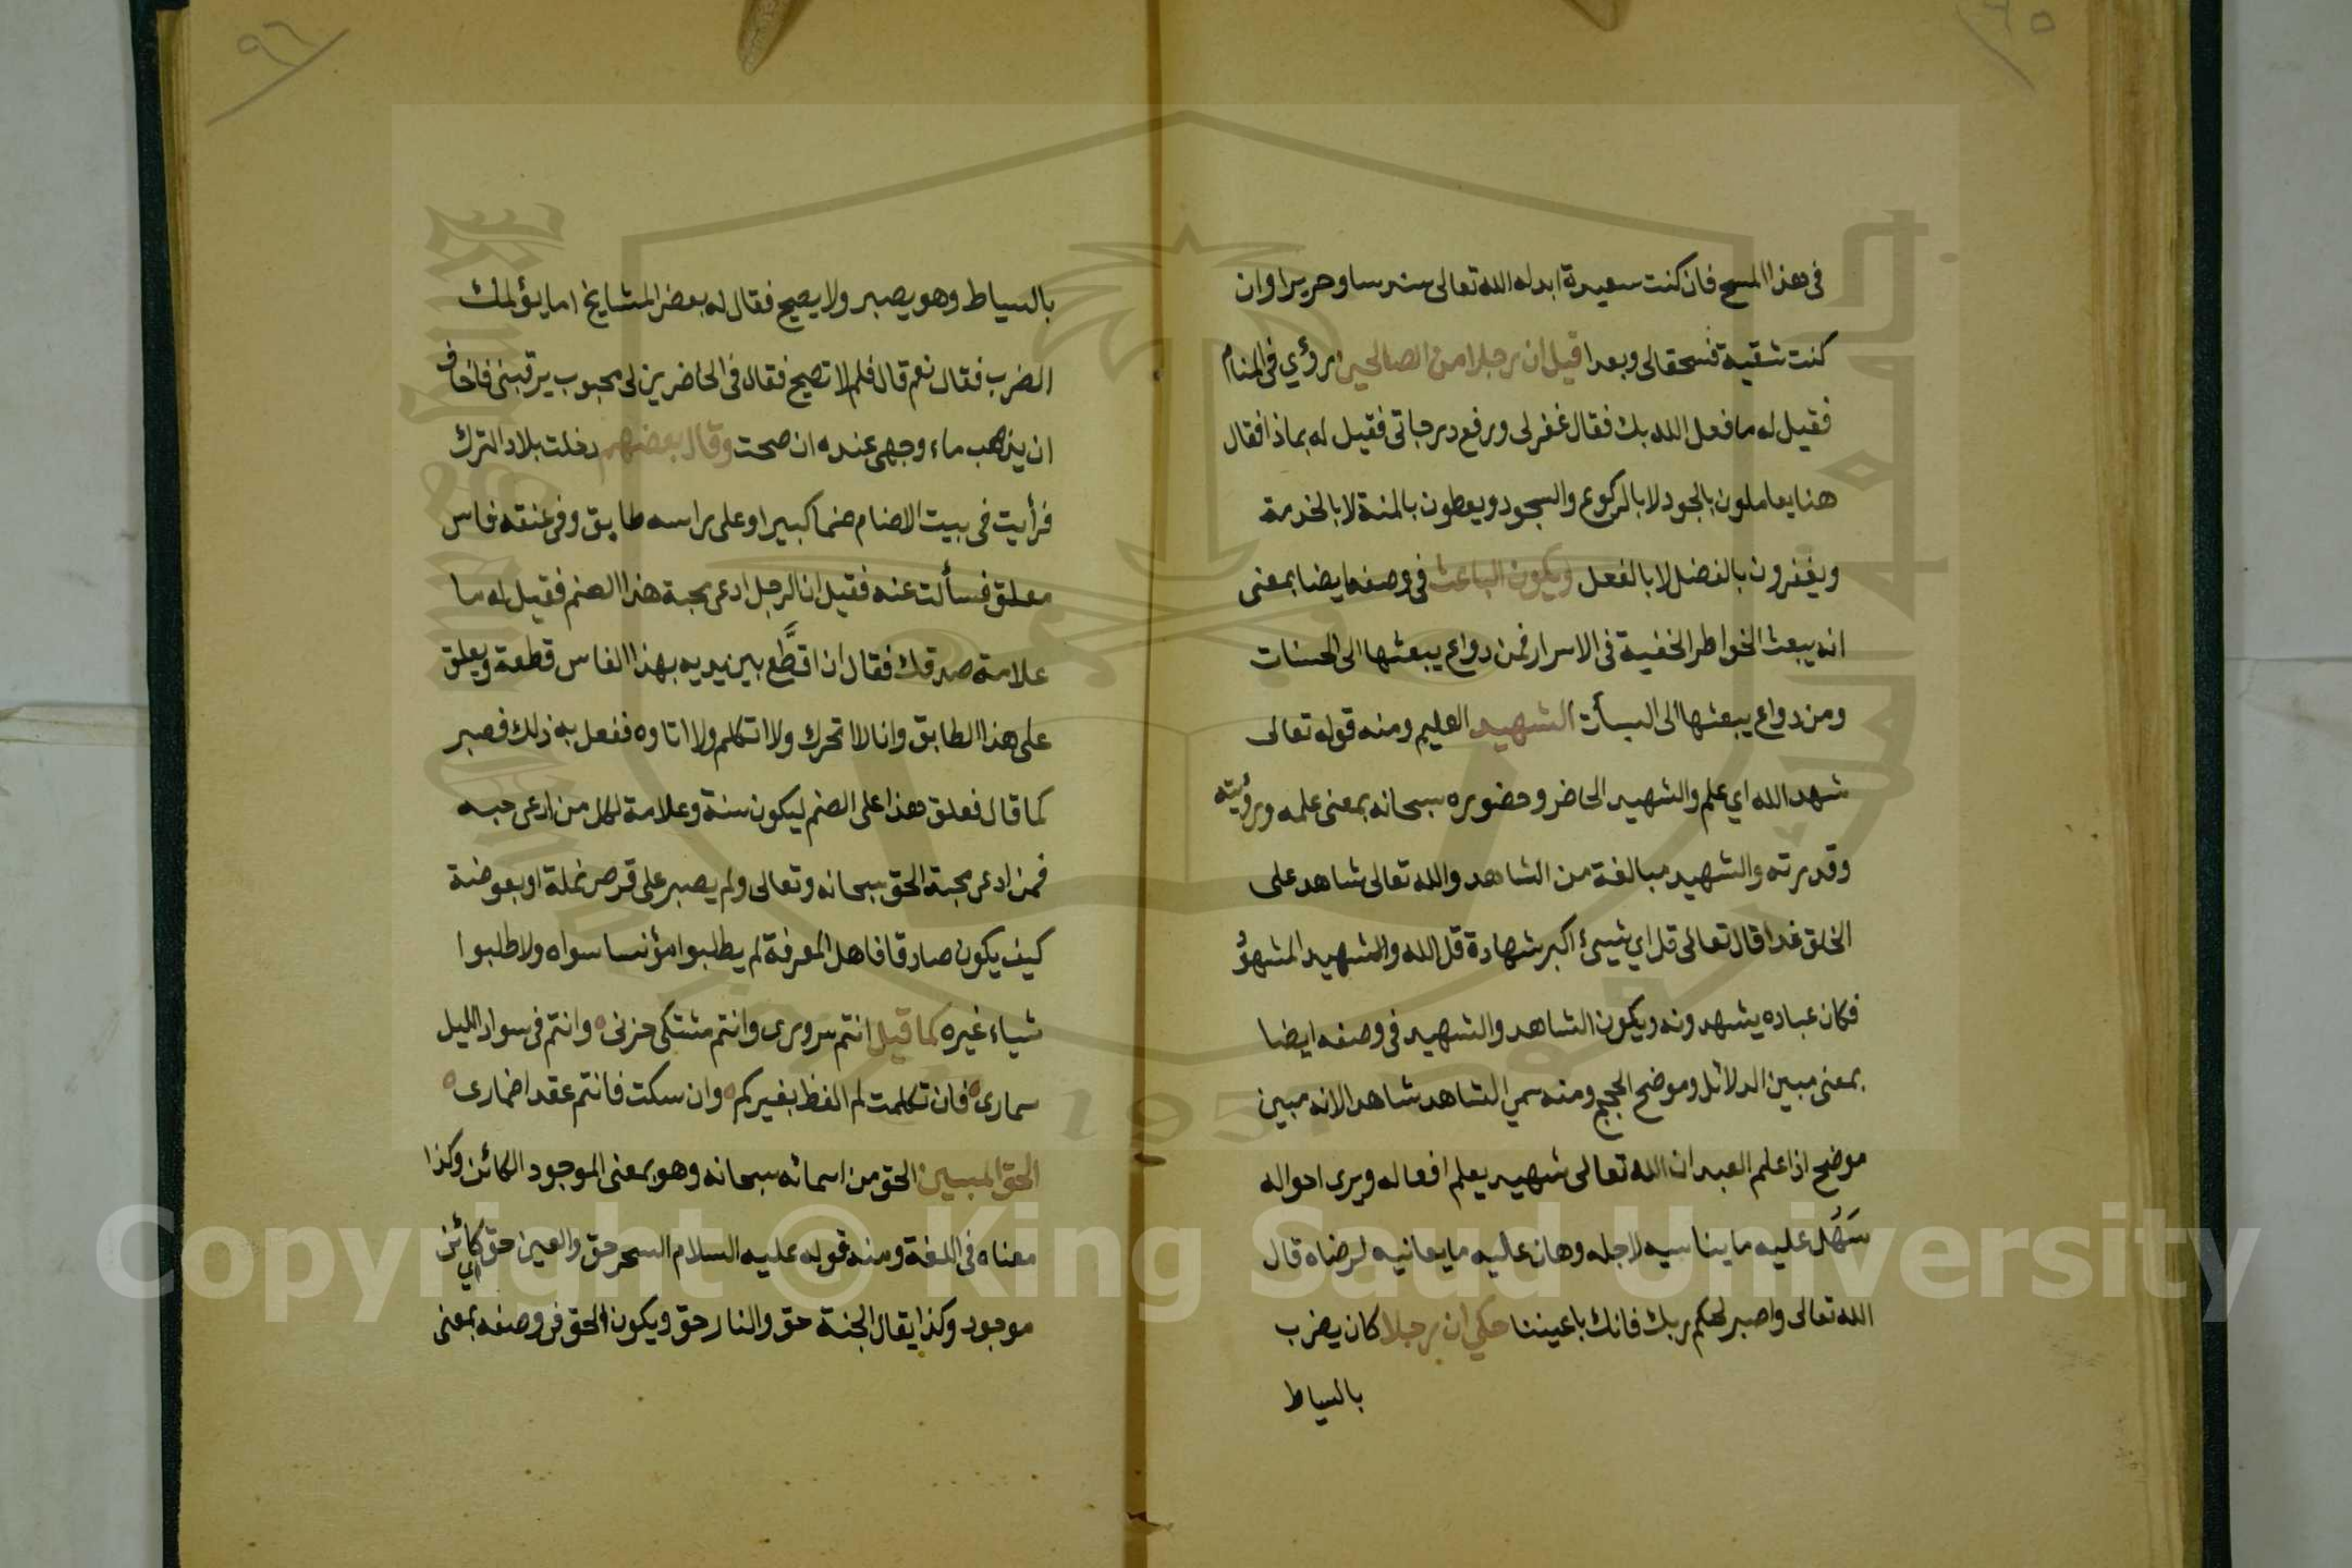 ٩٥
فى هذا المسح فان كنت سعيدة ابدله الله تعالى سندسا وحريرا وان
كنت شقية فسحقا لى وبعدا قيل ان رجلا من الصالحين رؤي فى المنام
فقيل له ما فعل الله بك فقال غفر لى ورفع درجاتى فقيل له بماذا فقال
هنا يعاملون بالجود لا بالركوع والسجود ويعطون بالمنة لا بالخدمة
ويغفرون بالفضل لا بالفعل ويكون الباعث فى وصفه ايضا بمعنى
انه يبعث الخواطر الخفية فى الاسرار فمن دواع يبعثها الى الحسنات
ومن دواع يبعثها الى السيأت الشهيد العليم ومنه قوله تعالى
شهد الله اي علم والشهيد الحاضر وحضوره سبحانه بمعنى علمه ورؤيته
وقدرته والشهيد مبالغة من الشاهد والله تعالى شاهد على
الخلق غدا قال تعالى قل اي شيئ اكبر شهادة قل الله والشهيد المشهود
فكان عباده يشهدونه ويكون الشاهد والشهيد فى وصفه ايضا
بمعنى مبين الدلائل وموضح الحجج ومنه سمي الشاهد شاهدا لانه مبين
موضح اذا علم العبد ان الله تعالى شهيد يعلم افعاله ويرى احواله
سَهُل عليه ما يناسيه لاجله وهان عليه ما يعانيه لرضاه قال
الله تعالى واصبر لحكم ربك فانك باعيننا حكي ان رجلا كان يضرب
بالسياط
٩٦
بالسياط وهو يصبر ولا يصيح فقال له بعض المشايخ اما يؤلمك
الضرب فقال نعم قال فلم لا تصيح فقال فى الحاضرين لى محبوب يرقبنى فاخاف
ان يذهب ماء وجهى عنده ان صحت وقال بعضهم دخلت بلاد الترك
فرأيت فى بيت الاصنام صنما كبيرا وعلى راسه طابق وفى عنقه فاس
معلق فسألت عنه فقيل ان الرجل ادعى محبة هذا الصنم فقيل له ما
علامة صدقك فقال ان اقطَّع بين يديه بهذا الفاس قطعة ويعلق
على هذا الطابق وانا لا اتحرك ولا اتكلم ولا اتاوه ففعل به ذلك فصبر
كما قال فعلق هذا على الصنم ليكون سنة وعلامة لكل من ادعى حبه
فمن ادعى محبة الحق سبحانه وتعالى ولم يصبر على قرص نملة او بعوضة
كيف يكون صادقا فاهل المعرفة لم يطلبوا مؤنسا سواه ولا طلبوا
شياء غيره كما قيل انتم سرورى وانتم مشتكى حزنى ه وانتم فى سواد الليل
سمارى ه فان تكلمت لم الفظ بغيركم ه وان سكت فانتم عقد اضمارى ه
الحق المبين الحق من اسمائه سبحانه وهو بمعنى الموجود الكائن وكذا
معناه فى اللغة ومنه قوله عليه السلام السحر حق والعين حق اي كائن
موجود وكذا يقال الجنة حق والنار حق ويكون الحق فى وصفه بمعنى
Copyright © King Saud University
1957